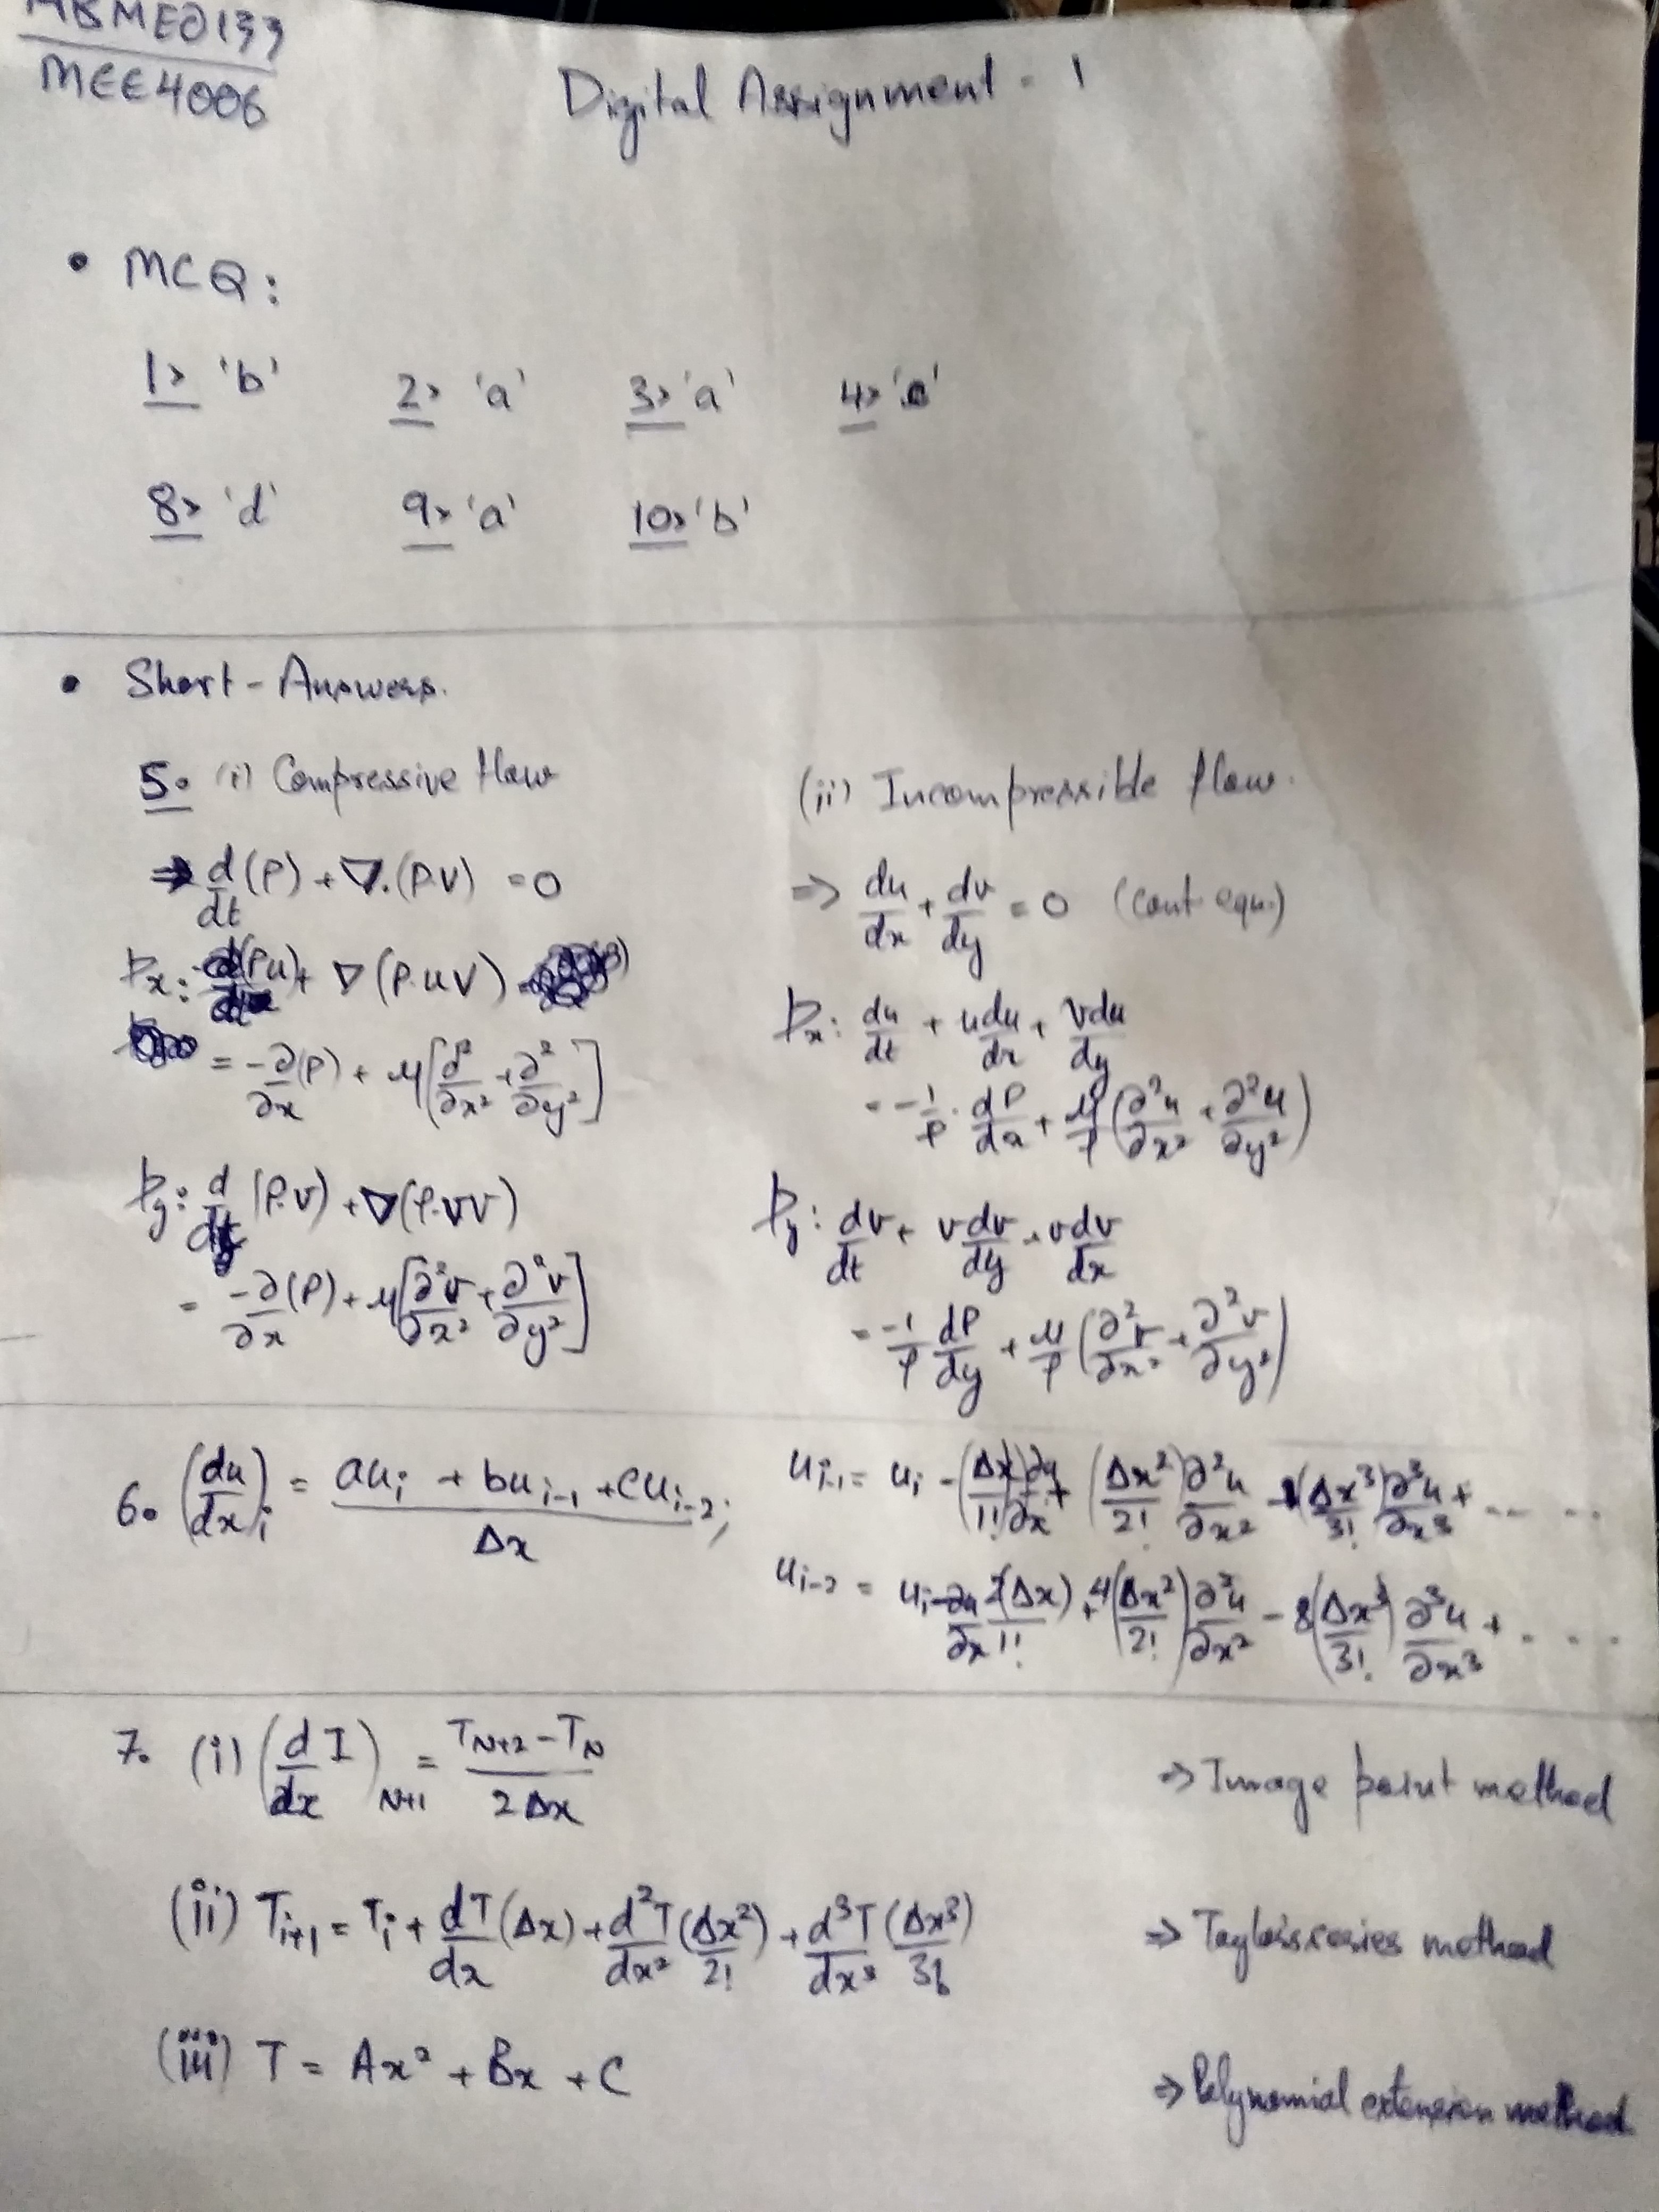 MEE4006
Digital Assignment - 1
• MCQ:
1> 'b' 2> 'a' 3> 'a' 4>
8> 'd' 9> 'a' 10> 'b'
• Short-Answers.
5. (i) Compressive flow
⇒ d/dt (ρ) + ∇.(ρ.V) = 0
Px: (ρu) + ∇(ρ.uV)
= -∂/∂x (P) + μ[∂²/∂x² + ∂²/∂y²]
Py: d/dt (ρ.v) + ∇(ρ.vV)
= -∂/∂x (P) + μ[∂²v/∂x² + ∂²v/∂y²]
(ii) Incompressible flow.
⇒ du/dx + dv/dy = 0 (cont equ.)
Px: du/dt + u du/dx + v du/dy
= -1/ρ . dP/dx + μ/ρ (∂²u/∂x² + ∂²u/∂y²)
Py: dv/dt + v dv/dy + v dv/dx
= -1/ρ dP/dy + μ/ρ (∂²v/∂x² + ∂²v/∂y²)
6. (du/dx)i = (aui + bui-1 + cui-2)/Δx ;
ui-1 = ui - (Δx/1!) ∂u/∂x + (Δx²/2!) ∂²u/∂x² - (Δx³/3!) ∂³u/∂x³ + ... ..
ui-2 = ui - ∂u/∂x 2(Δx)/1! + 4(Δx²/2!) ∂²u/∂x² - 8(Δx³/3!) ∂³u/∂x³ + . . . .
7. (i) (d/dx T)N+1 = (TN+2 - TN)/2Δx ⇒ Image point method
(ii) Ti+1 = Ti + dT/dx (Δx) + d²T/dx² (Δx²/2!) + d³T/dx³ (Δx³/3!) ⇒ Taylor's series method
(iii) T = Ax² + Bx + C ⇒ Polynomial extension method